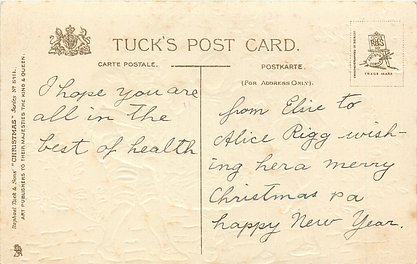 TUCK'S POST CARD.
CARTE POSTALE.
POSTKARTE.
(FOR ADDRESS ONLY).
Raphael Tuck & Sons' "CHRISTMAS" Series Nº
ART PUBLISHERS TO THEIR MAJESTIES THE KING & QUEEN.
I hope you are
all in the
best of health
from Elsie to
Alice Rigg wish-
ing her a merry
Christmas
happy New Year.
TRADE MARK